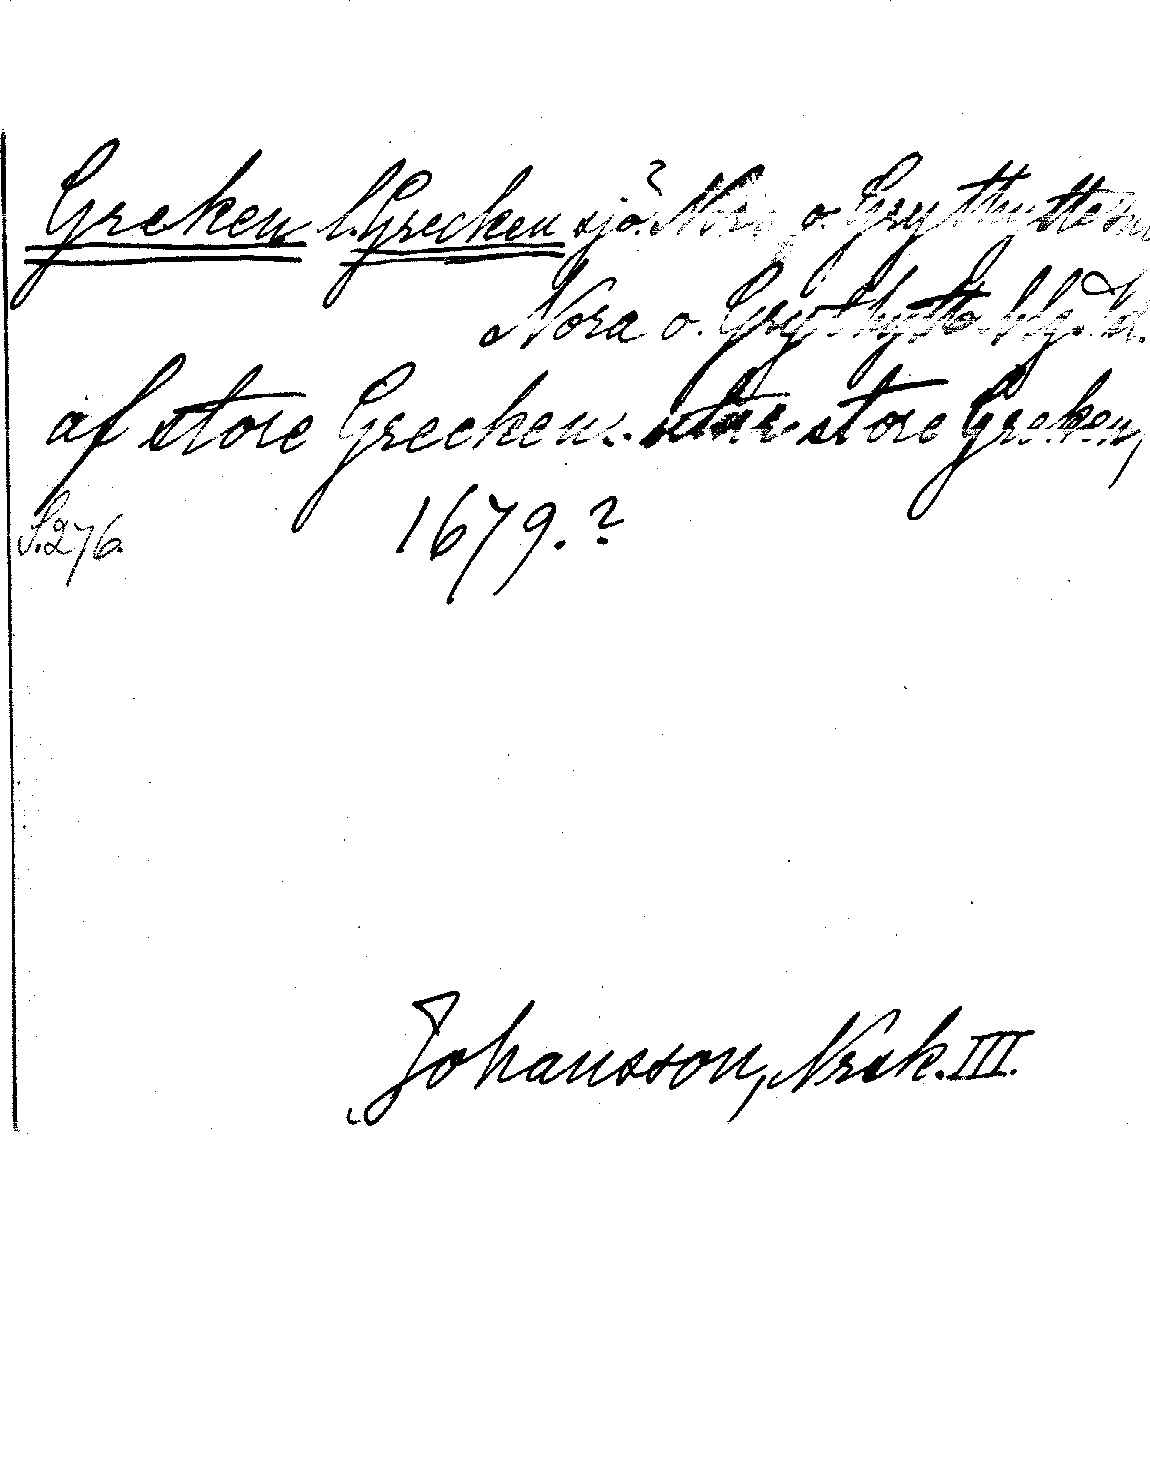 Greken l. Grecken sjö. Nora o. Grythytte sn
Nora o. Grythytte bg. hd.
af store Grecken. store Greken,
S. 276. 1679.?
Johansson, Nrsk. III.